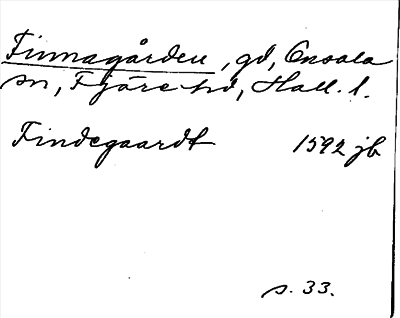 Finnagården, gd, Onsala
sn, Fjäre hd, Hall. l.
Findegaardt 1592 jb
s. 33.